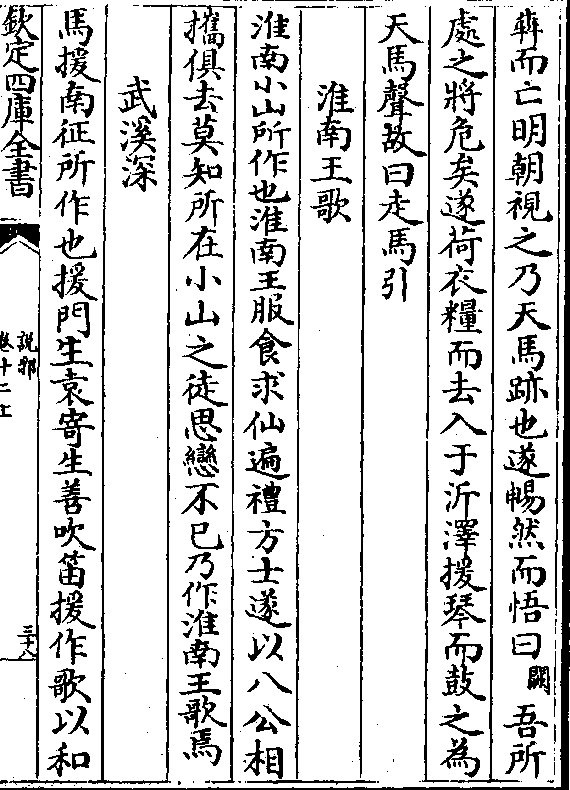 犇而亡明朝視之乃天馬跡也遂惕然而悟曰闕吾所
處之將危矣遂荷衣糧而去入于沂澤援琴而鼓之為
天馬聲故曰走馬引
淮南王歌
淮南小山所作也淮南王服食求仙遍禮方士遂以八公相
攜俱去莫知所在小山之徒思戀不已乃作淮南王歌焉
武溪深
馬援南征所作也援門生袁寄生善吹笛援作歌以和
欽定四庫全書
說郛
卷十二上
三十八